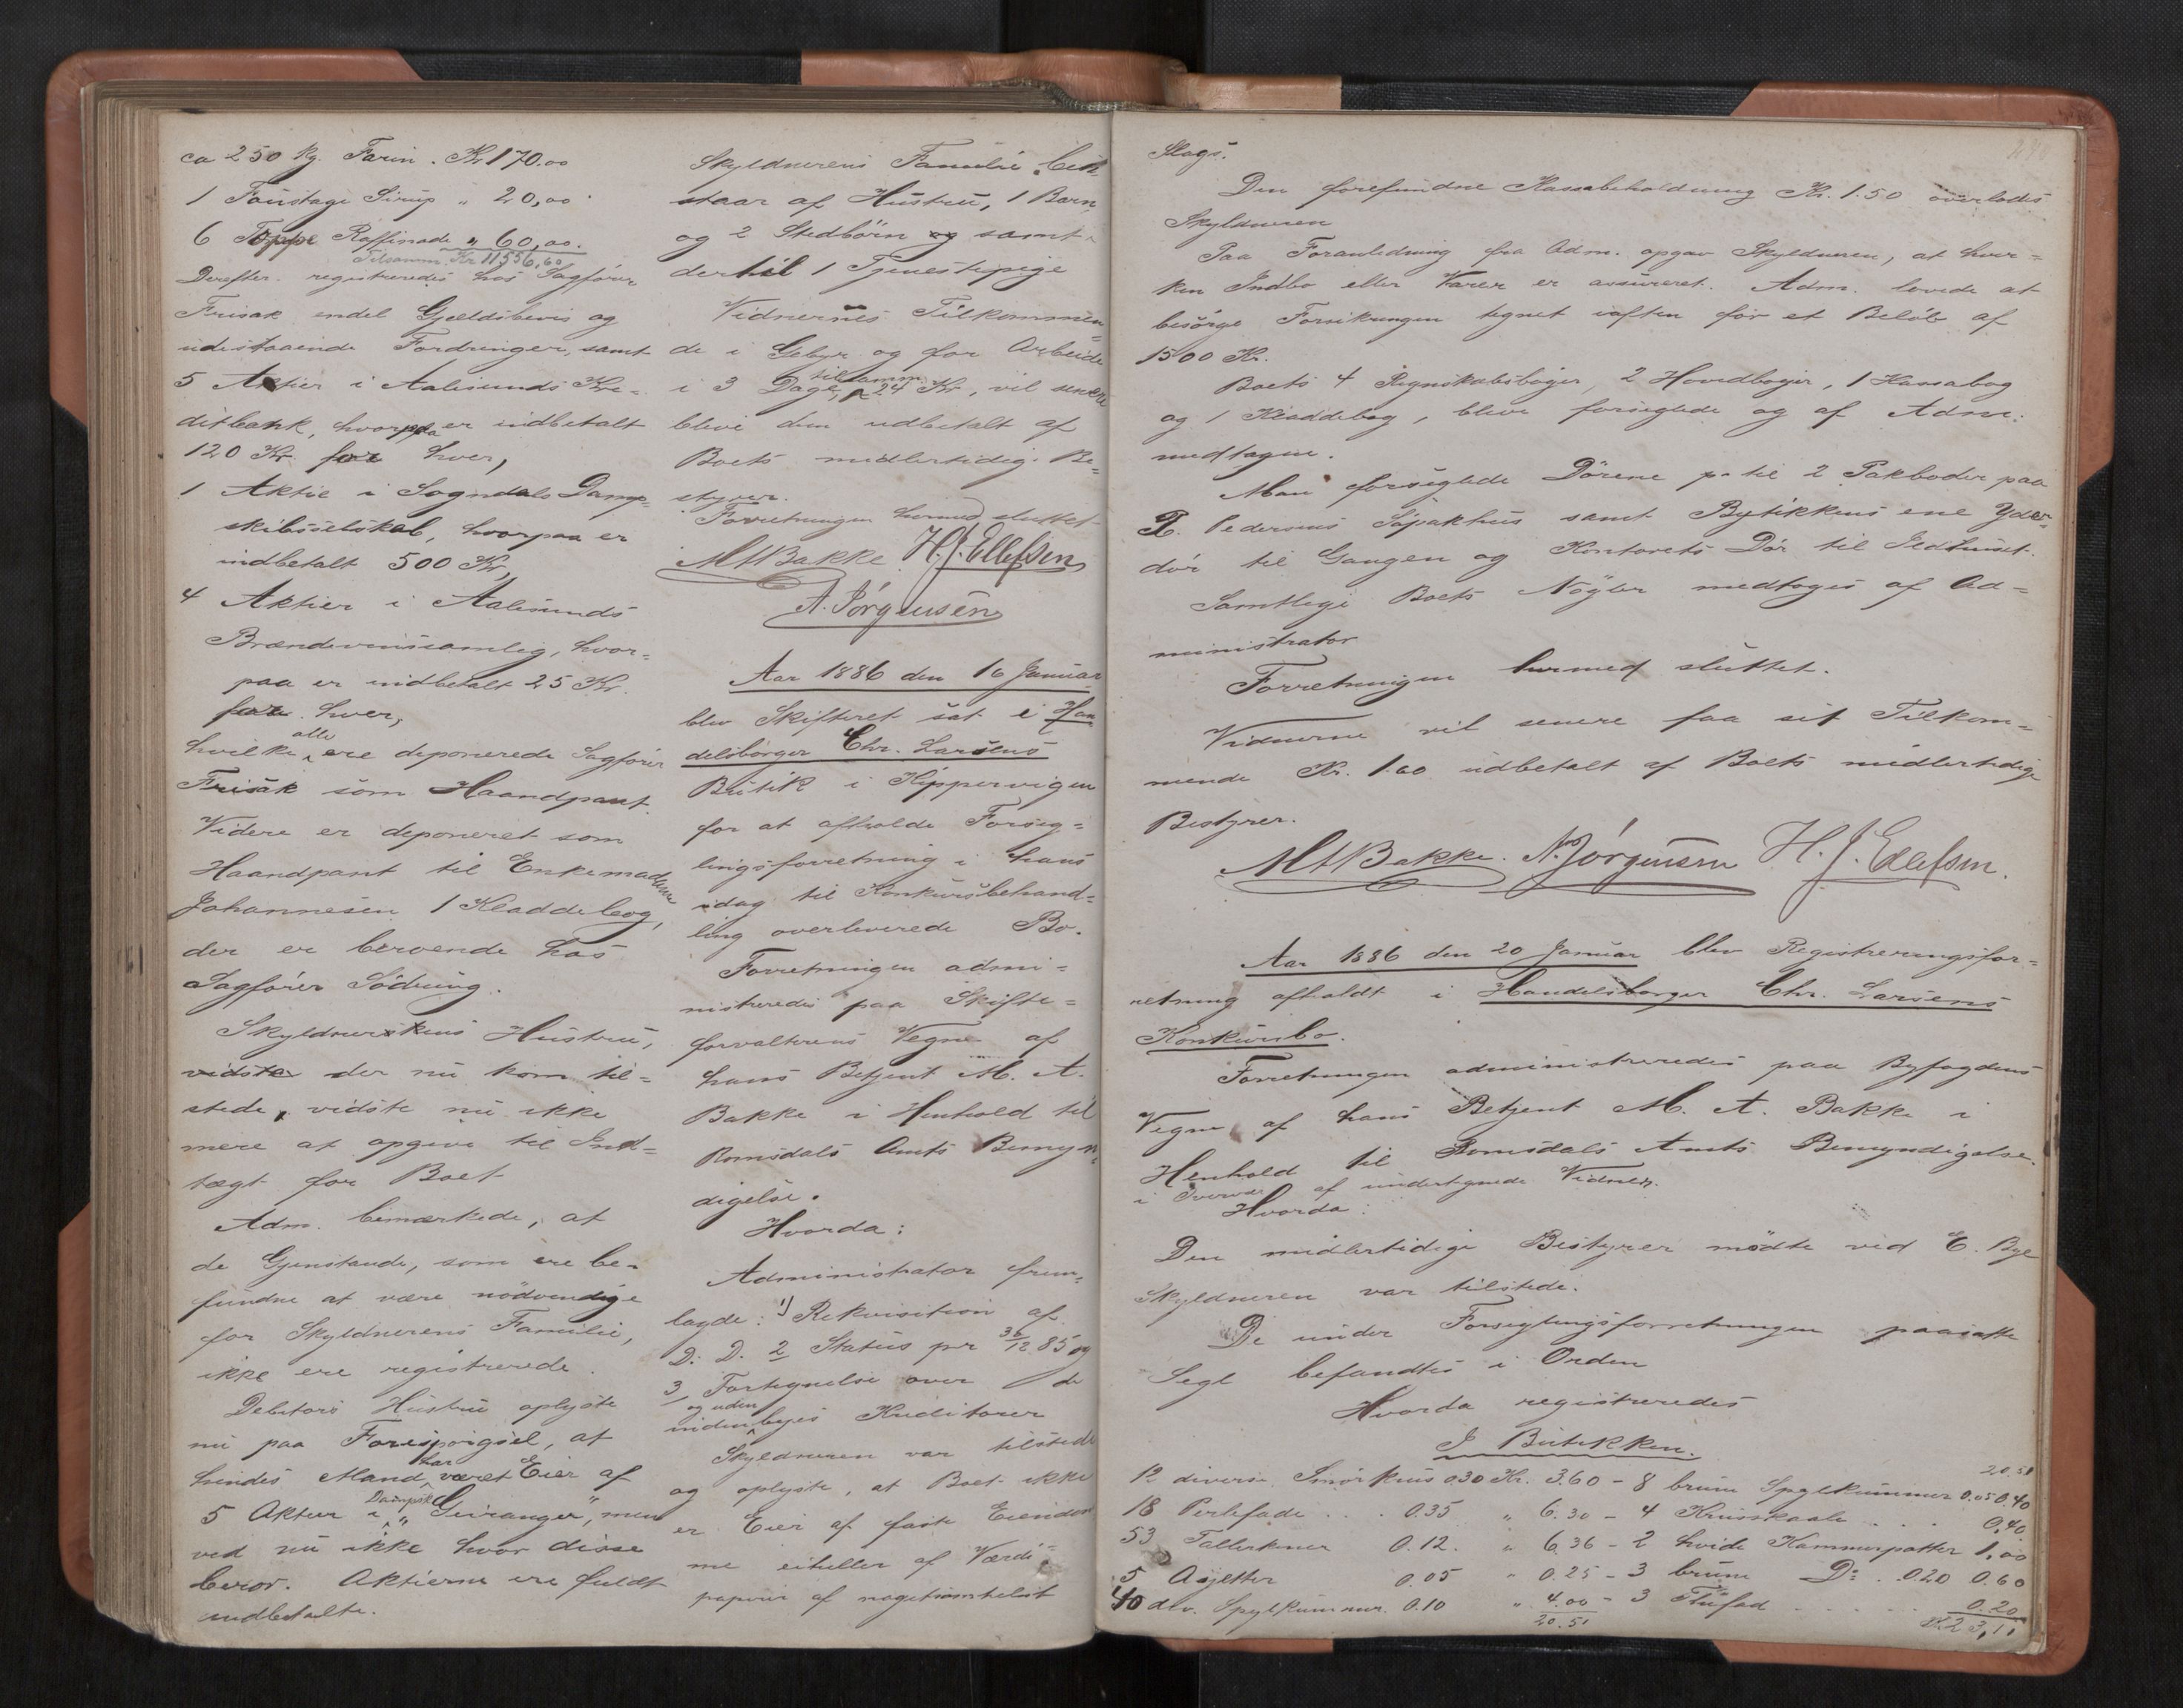 ca 250 Kg. Farin. Kr 170.00
1 Foustage Sirup " 20,00
6 Toppe Raffinade " 60,00.
Tilsamm. Kr 11556,60
Derefter registreredes hos Sagfører
Frisak endel Gjældsbevis og
udestaaende Fordringer, samt
5 Aktier i Aalesunds Kre-
ditbank, hvorpaa er indbetalt
120 Kr. for hver,
1 Aktie i Sogndals Damp-
skibsselskab, hvorpaa er
indbetalt 500 Kr,
4 Aktier i Aalesunds
Brændevinssamlag, hvor-
paa er indbetalt 25 Kr.
for hver,
hvilke alle ere deponerede Sagfører
Frisak som Haandpant.
Videre er deponeret som
Haandpant til Enkemadame
Johannesen 1 Kladdebog,
der er beroende hos
Sagfører Södring.
Skyldnerens Hustru,
vidste der nu kom til-
stede, vidste nu ikke
mere at opgive til Ind-
tægt for Boet
Adm. bemærkede, at
de Gjenstande, som ere be-
fundne at være nödvendige
for Skyldnerens Familie,
ikke ere registrerede.
Debitors Hustru oplyste
nu paa Forespörgsel, at
hendes Mand har været Eier af
5 Aktier i Dampsk. "Geiranger", men
ved nu ikke hvor disse
beror. Aktierne ere fuldt
indbetalte.
Skyldnerens Familie be-
staar af Hustru, 1 Barn
og 2 Stedbörn og samt
dertil 1 Tjenestepige
Vidnernes Tilkommen-
de i Gebyr og for Arbeide
i 3 Dage, tilsamm. 24 Kr, vil senere
blive dem udbetalt af
Boets midlertidige Be-
styrer.
Forretningen hermed sluttet
M A Bakke. H. J. Ellefsen
A. Jørgensen
Aar 1886 den 16 Januar
blev Skifteret sat i Han
delsborger Chr. Larsens
Butik i Kippervigen
for at afholde Forseg-
lingsforretning i hans
idag til Konkursbehand-
ling overleverede Bo.
Forretningen admi-
nistreredes paa Skifte-
forvalterens Vegne af
hans Betjent M. A.
Bakke i Henhold til
Romsdals Amts Bemyn-
digelse.
Hvorda:
Administrator frem-
lagde: 1) Rekvisition af
D. D. 2 Status pr 31/12 85 og
3, Fortegnelse over de
inden og uden byes Kreditorer
Skyldneren var tilstede
og oplyste, at Boet ikke
er Eier af faste Eiendom
me eiheller af Værdi-
papirer af nogetsomhelst
Slags.
Den forefundne Kassabeholdning Kr. 1.50 overlodes
Skyldneren
Paa Foranledning fra Adm. opgav Skyldneren, at hver-
ken Indbo eller Varer er assureret. Adm. lovede at
besörge Forsikringen tegnet iaften for et Belöb af
1500 Kr.
Boets 4 Regnskabsbøger, 2 Hovedbøger, 1 Kassabog
og 1 Kladdebog, bleve forseglede og af Adm.
medtagne.
Man forseglede Dörene p- til 2 Pakboder paa
R. Pedersens Söpakhus samt Butikkens ene Yder-
dör til Gangen og Kontorets Dör til Ildhuset.
Samtlige Boets Nögler medtoges af Ad-
ministrator
Forretningen hermed sluttet.
Vidnerne vil senere faa sit Tilkom-
mende Kr. 1.60 udbetalt af Boets midlertidige
Bestyrer.
M A Bakke. A. Jörgensen H. J. Ellefsen.
Aar 1886 den 20 Januar blev Registreringsfor-
retning afholdt i Handelsborger Chr. Larsens
Konkursbo.
Forretningen administreredes paa Byfogdens
Vegne af hans Betjent M. A. Bakke i
Henhold til Romsdals Amts Bemyndigelse.
i Overvær af undertegnede Vidner.
Hvorda:
Den midlertidige Bestyrer mödte ved E. Bye
Skyldneren var tilstede.
De under Forseglingsforretningen paasatte
Segl befandtes i Orden
Hvorda registreredes
I Butikken.
20.51
12 diverse Smörkrus 0.30 Kr. 3.60 - 8 brune Spylkummer 0.05 0.40
18 Perlefade . . . 0.35 " 6.30 - 4 Krusskaale . . . 0,40
53 Tallerkener 0.12. " 6.36 - 2 hvide Kammerpotter 1,00
5 Asjetter 0.05 " 0.25 - 3 brune Do . 0.20 0.60
40 dlv. Spylkummer. 0.10 " 4.00 - 3 Flufad . . . 0.20
20.51 23,11